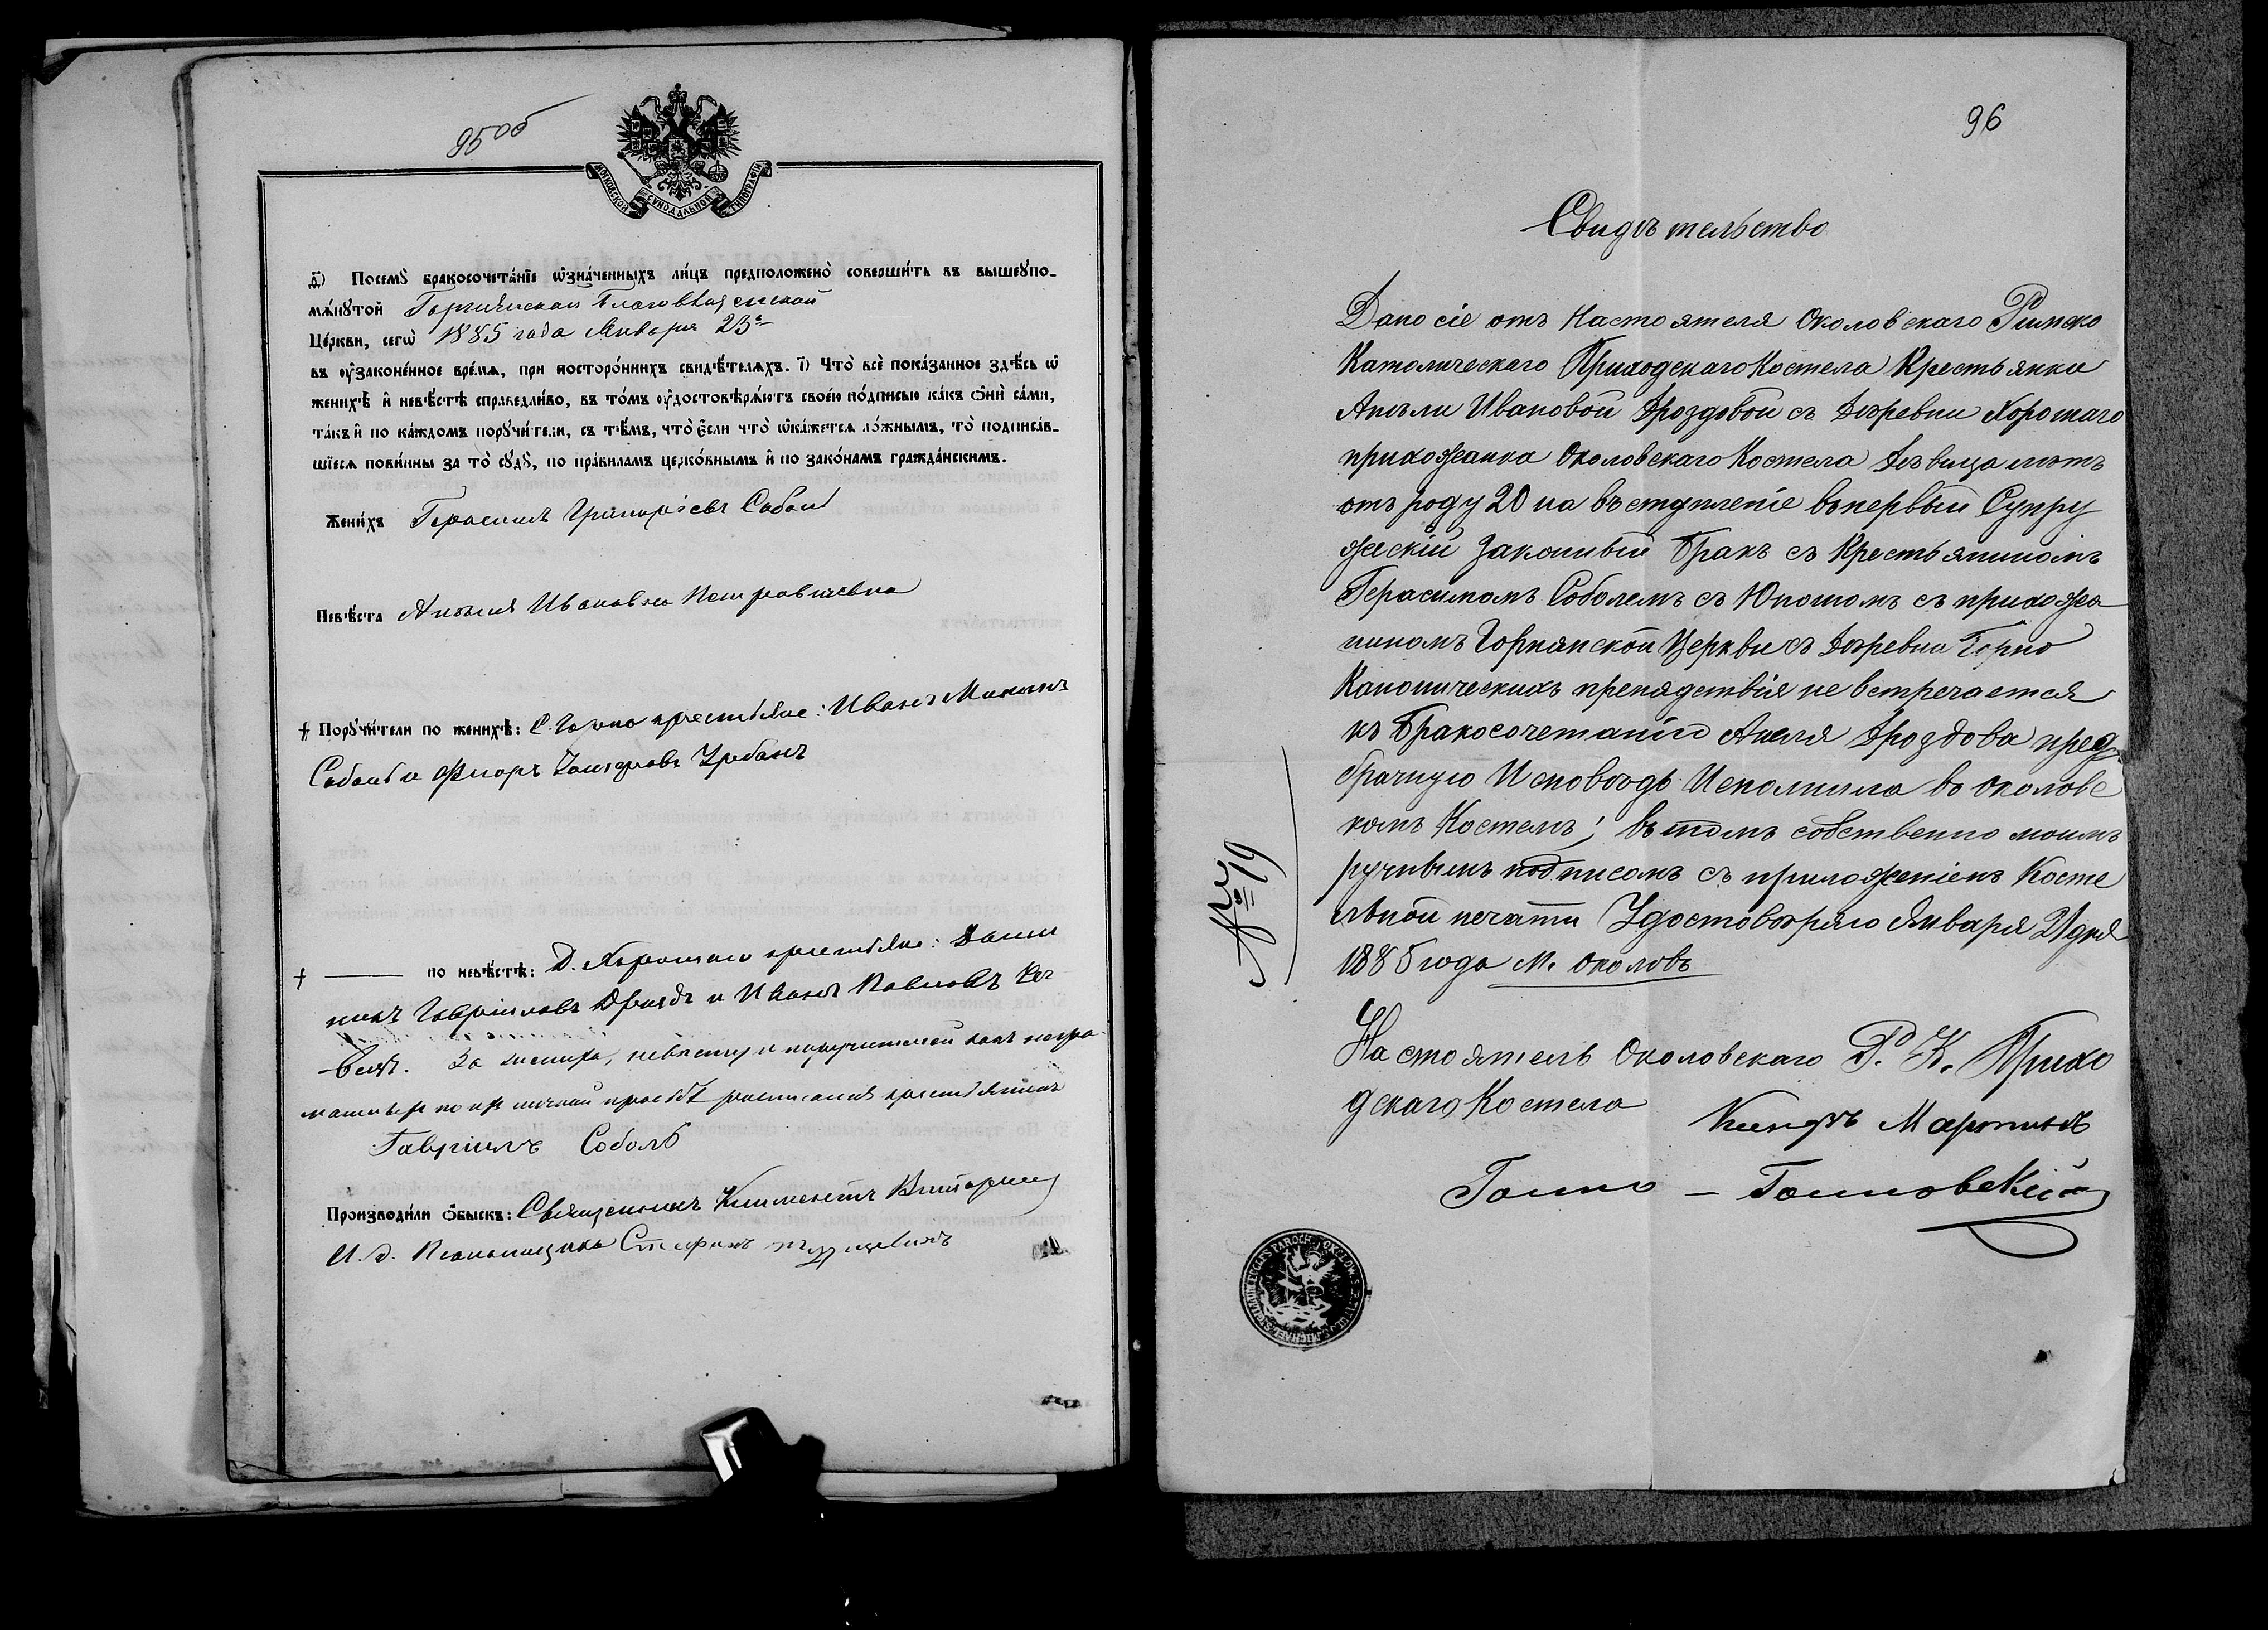 95 об
МОСКОВСКОЙ СѴНОДАЛЬНОЙ ТИПОГРАФІИ
Посемꙋ̀ бракосочета́нїе ѡ҆зна́ченныхъ ли́цъ предположено̀ соверши́ть въ вышеꙋпо-
мѧ́нꙋтой Горнянской Благовѣщенской
Це́ркви, сегѡ̀ 1885 года Января 23го
въ ᲂу҆законе́нное вре́мѧ, при посторо́ннихъ свидѣ́телѧхъ. і҃) Что̀ всѐ пока́занное здѣ́сь ѡ҆
женихѣ̀ и҆ невѣ́стѣ справедли́во, въ то́мъ ᲂу҆достовѣрѧ́ютъ свое́ю по́дписью ка́къ ѻ҆нѝ са́ми,
та́къ и҆ по ка́ждомъ порꙋчи́тели, съ тѣ́мъ, что̀ є҆́сли что̀ ѡ҆ка́жетсѧ ло́жнымъ, то̀ подписа́в-
шїесѧ пови́нны за то̀ сꙋдꙋ̀, по пра́виламъ церко́внымъ и҆ по зако́намъ гражда́нскимъ.
Жени́хъ Герасимъ Григоріевъ Соболь
Невѣ́ста Ангеля Ивановна
† Порꙋчи́тели по женихѣ̀: С. Горно крестьяне: Иванъ
Соболь и Урбанъ
† —— по невѣ́стѣ: Д. Хоротаго крестьяне:
Гавріиловъ Дроздъ и Иванъ Павловъ
За жениха, невѣсту и поручителей какъ негра-
мотныхъ по ихъ личной просьбѣ росписался крестьянинъ
Гавріилъ Соболь
Производи́ли ѻ҆́быскъ: Священникъ Климентъ
И. д. Псаломщика Стефанъ
96
Свидѣтельство
Дано сіе отъ Настоятеля Околовскаго Римско
Католическаго Приходскаго Костела Крестьянки
Ангели Ивановой Дроздовой съ Деревни Хоротаго
прихожанка Околовскаго Костела Дѣвица лѣтъ
отъ роду 20 на въступленіе въпервый Супру
жескій Законный Бракъ съ Крестьяниномъ
Герасимомъ Соболемъ съ Юношомъ съ прихожа
ниномъ Горнянской Церкви съ Деревни Горно
Каноническихъ препядствія не встречается
къ Бракосочетанію Ангеля Дроздова пред
брачную Исповѣдь Исполнила во околовс
комъ Костелѣ; въ томъ собственно моимъ
ручнымъ подписомъ съ приложеніемъ Косте
льной печати Удостовѣряю Января 21 дня
1885 года М. Околовъ
№ 19
Настоятель Околовскаго Р. К. Прихо
дскаго Костела Ксендзъ Мартинъ